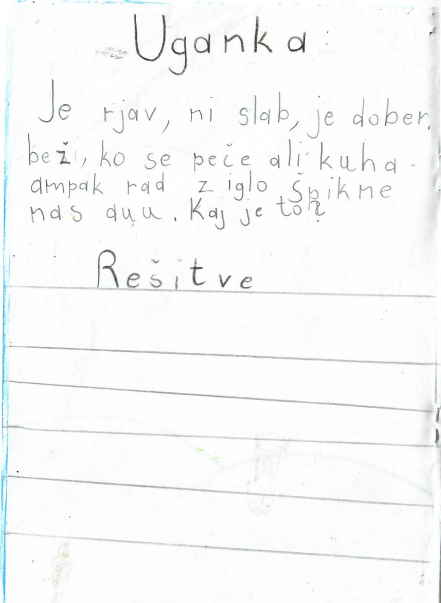 Uganka:
Je rjav, ni slab, je dober.
bež, ko se peče ali kuha.
ampak rad z iglo špikne
nas auu. Kaj je to?
Rešitve